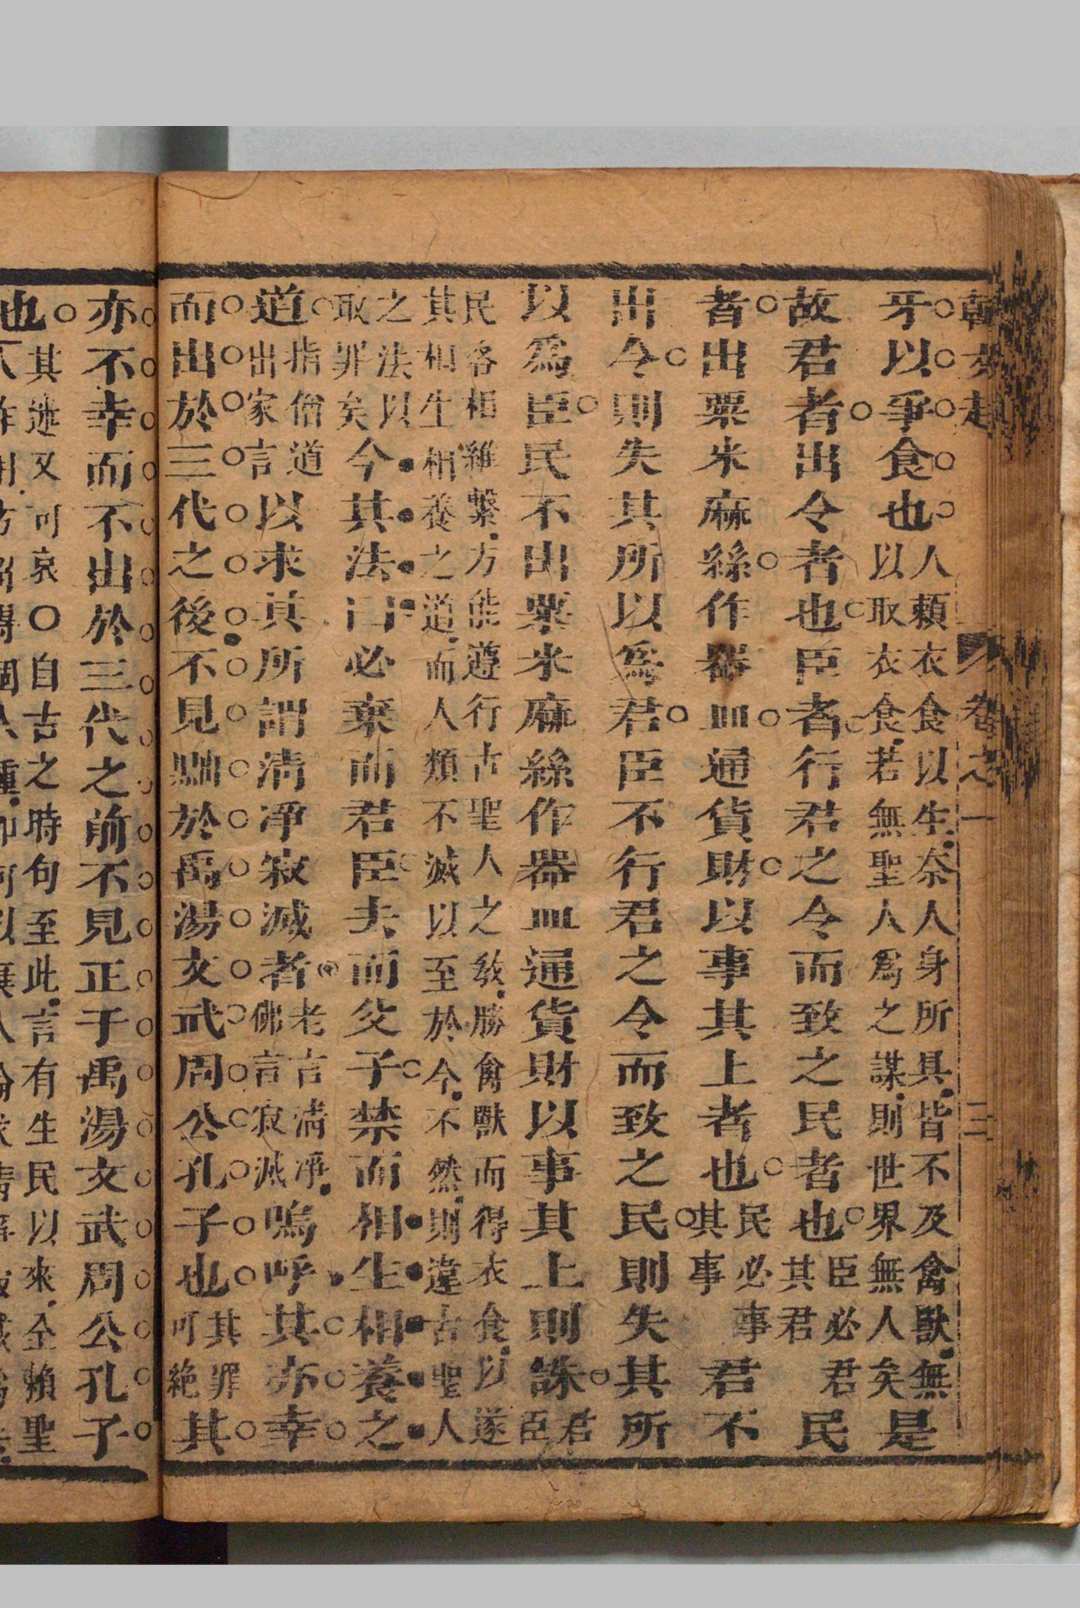 卷之一 三
牙以爭食也人賴衣食以生奈人身所具皆不及禽獸無以取衣食若無聖人爲之謀則世界無人矣是
故君者出令者也臣者行君之令而致之民者也臣必君其君事民
者出粟米麻絲作器皿通貨財以事其上者也民必事其事君不
出令則失其所以爲君臣不行君之令而致之民則失其所
以爲臣民不出粟米麻絲作器皿通貨財以事其上則誅君臣
民各相維繫方能遵行古聖人之教勝禽獸而得衣食以遂其相生相養之道而人類不滅以至於今不然則違古聖人
之法以取罪矣今其法曰必棄而君臣去而父子禁而相生相養之
道指僧道出家言以求其所謂清淨寂滅者老言清淨佛言寂滅嗚呼其亦幸
而出於三代之後不見黜於禹湯文武周公孔子也其罪可絶其
亦不幸而不出於三代之前不見正于禹湯文武周公孔子
也其迷又可哀〇自古之時句至此言有生民以來全賴聖